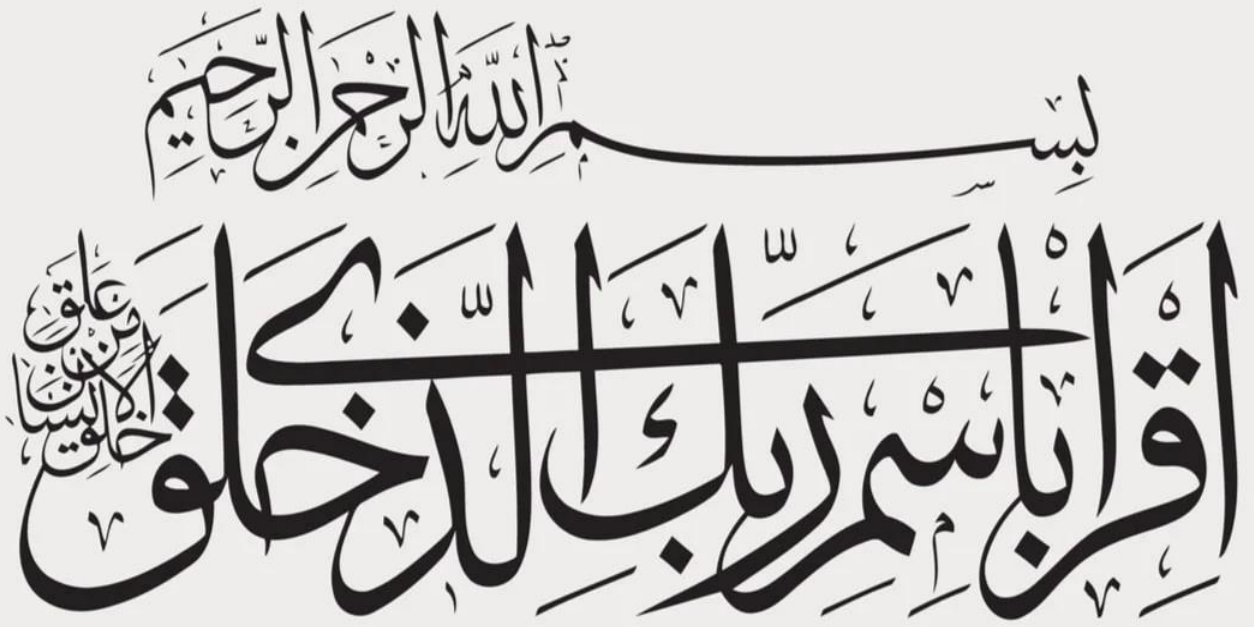 بِسْمِ اللَّهِ الرَّحْمَنِ الرَّحِيمِ
اقْرَأْ بِاسْمِ رَبِّكَ الَّذِي خَلَقَ
خَلَقَ الْإِنْسَانَ مِنْ عَلَقٍ